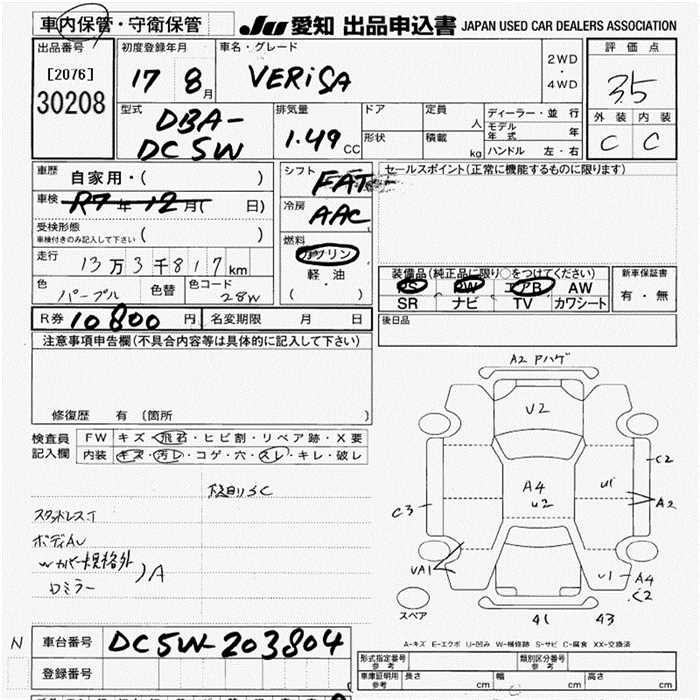 車内保管・守衛保管 JU 愛知 出品申込書 JAPAN USED CAR DEALERS ASSOCIATION
出品番号 [2076] 30208
初度登録年月 17 8月
車名・グレード VERiSA
2WD・4WD
評価点 3.5
外装 内装
C C
型式 DBA-DC5W
排気量 1.49 CC
ドア 形状
定員 人
積載 kg
ディーラー・並行
モデル年式 年
ハンドル 左・右
車歴 自家用・( )
車検 R7年12月( 日)
受検形態 車検付きのみ記入して下さい ( )
走行 13万3千817km
色 パープル 色替 色コード 28W
シフト FAT
冷房 AAC
燃料 ガソリン
軽油
( )
セールスポイント(正常に機能するものに限ります)
装備品(純正品に限り○をつけてください)
PS PW エアB AW
SR ナビ TV カワシート
新車保証書
有・無
後日品
R券 10800円 名変期限 月 日
注意事項申告欄(不具合内容等は具体的に記入して下さい)
修復歴 有 (箇所 )
検査員記入欄
FW キズ・飛石・ヒビ割・リペア跡・X要
内装 キズ・汚レ・コゲ・穴・スレ・キレ・破レ
スタッドレスT
ボディAu
Wカバー規格外
Dミラー
)A
A2 Pハゲ
U2
C2
A4
U2
U1
A2
C3
UA1
U1 A4
C2
スペア
41 43
A-キズ E-エクボ U-凹み W-補修跡 S-サビ C-腐食 XX-交換済
N 車台番号 DC5W-203804
登録番号
形式指定番号 参考
類別区分番号 参考
車庫証明用 参考 長さ cm 幅 cm 高さ cm